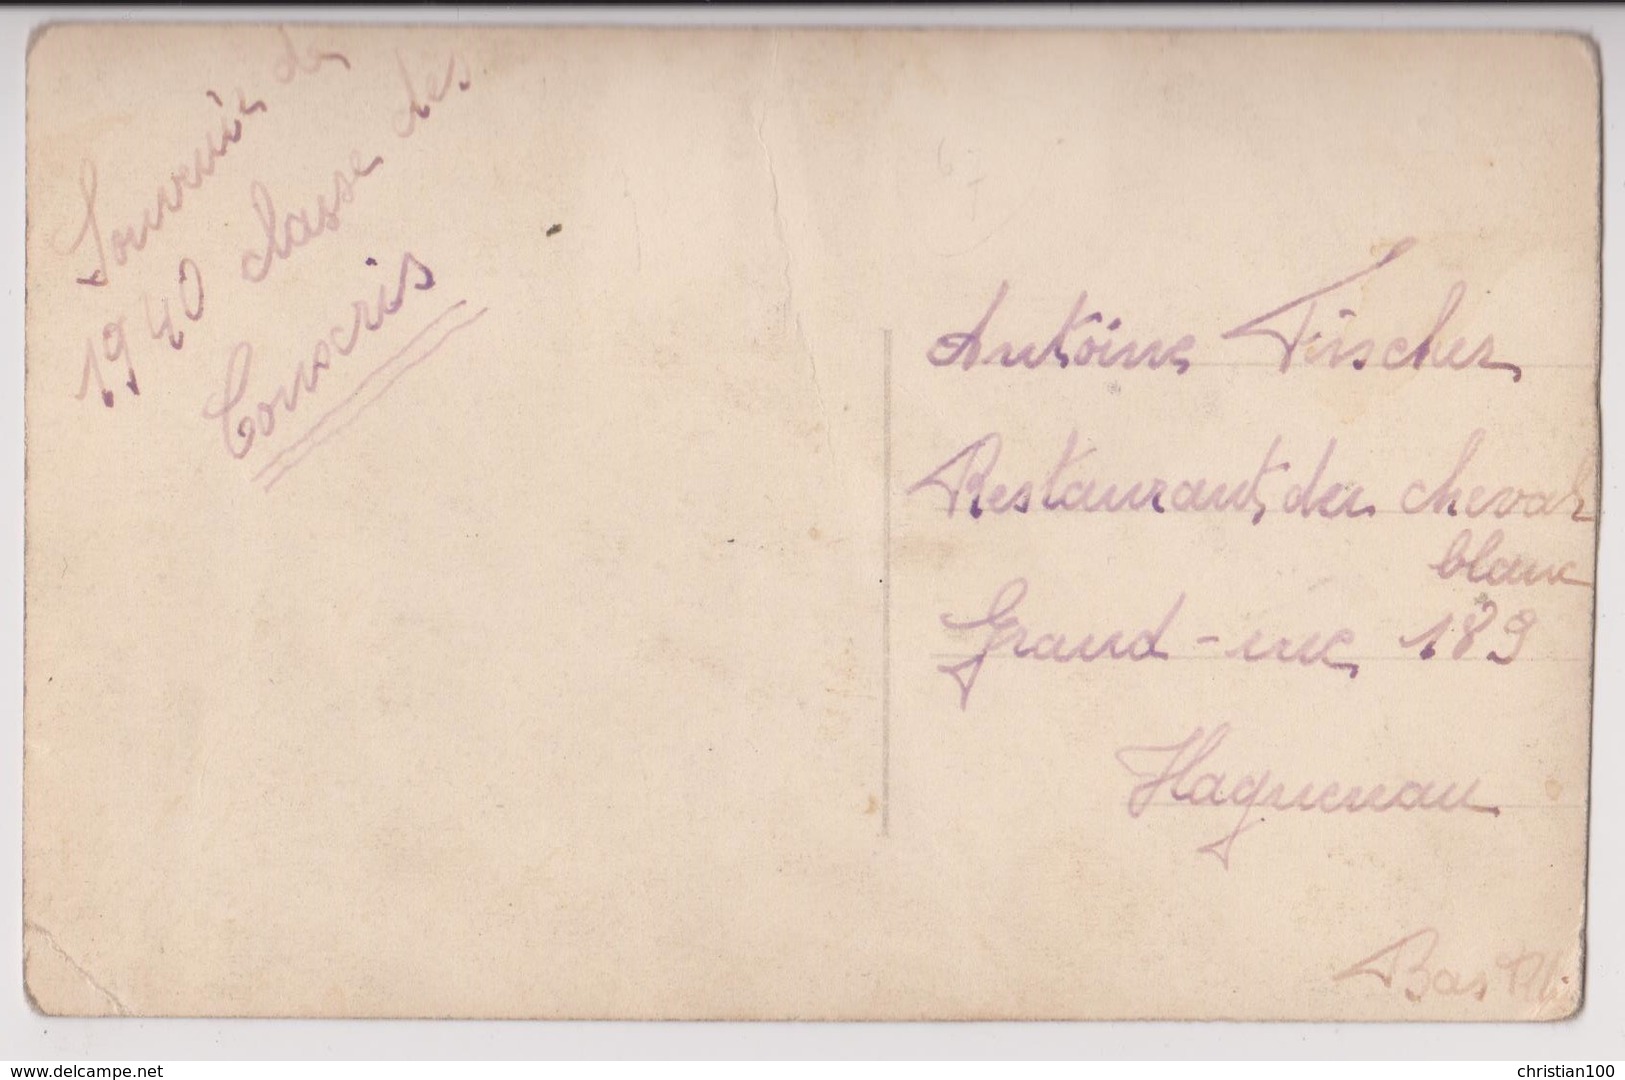 Souvenir de
1940 classe des
Conscris
Antoine Fischer
Restaurant du cheval
blanc
Grand-rue 189
Haguenau
Bas Rhi
www.delcampe.net
christian100